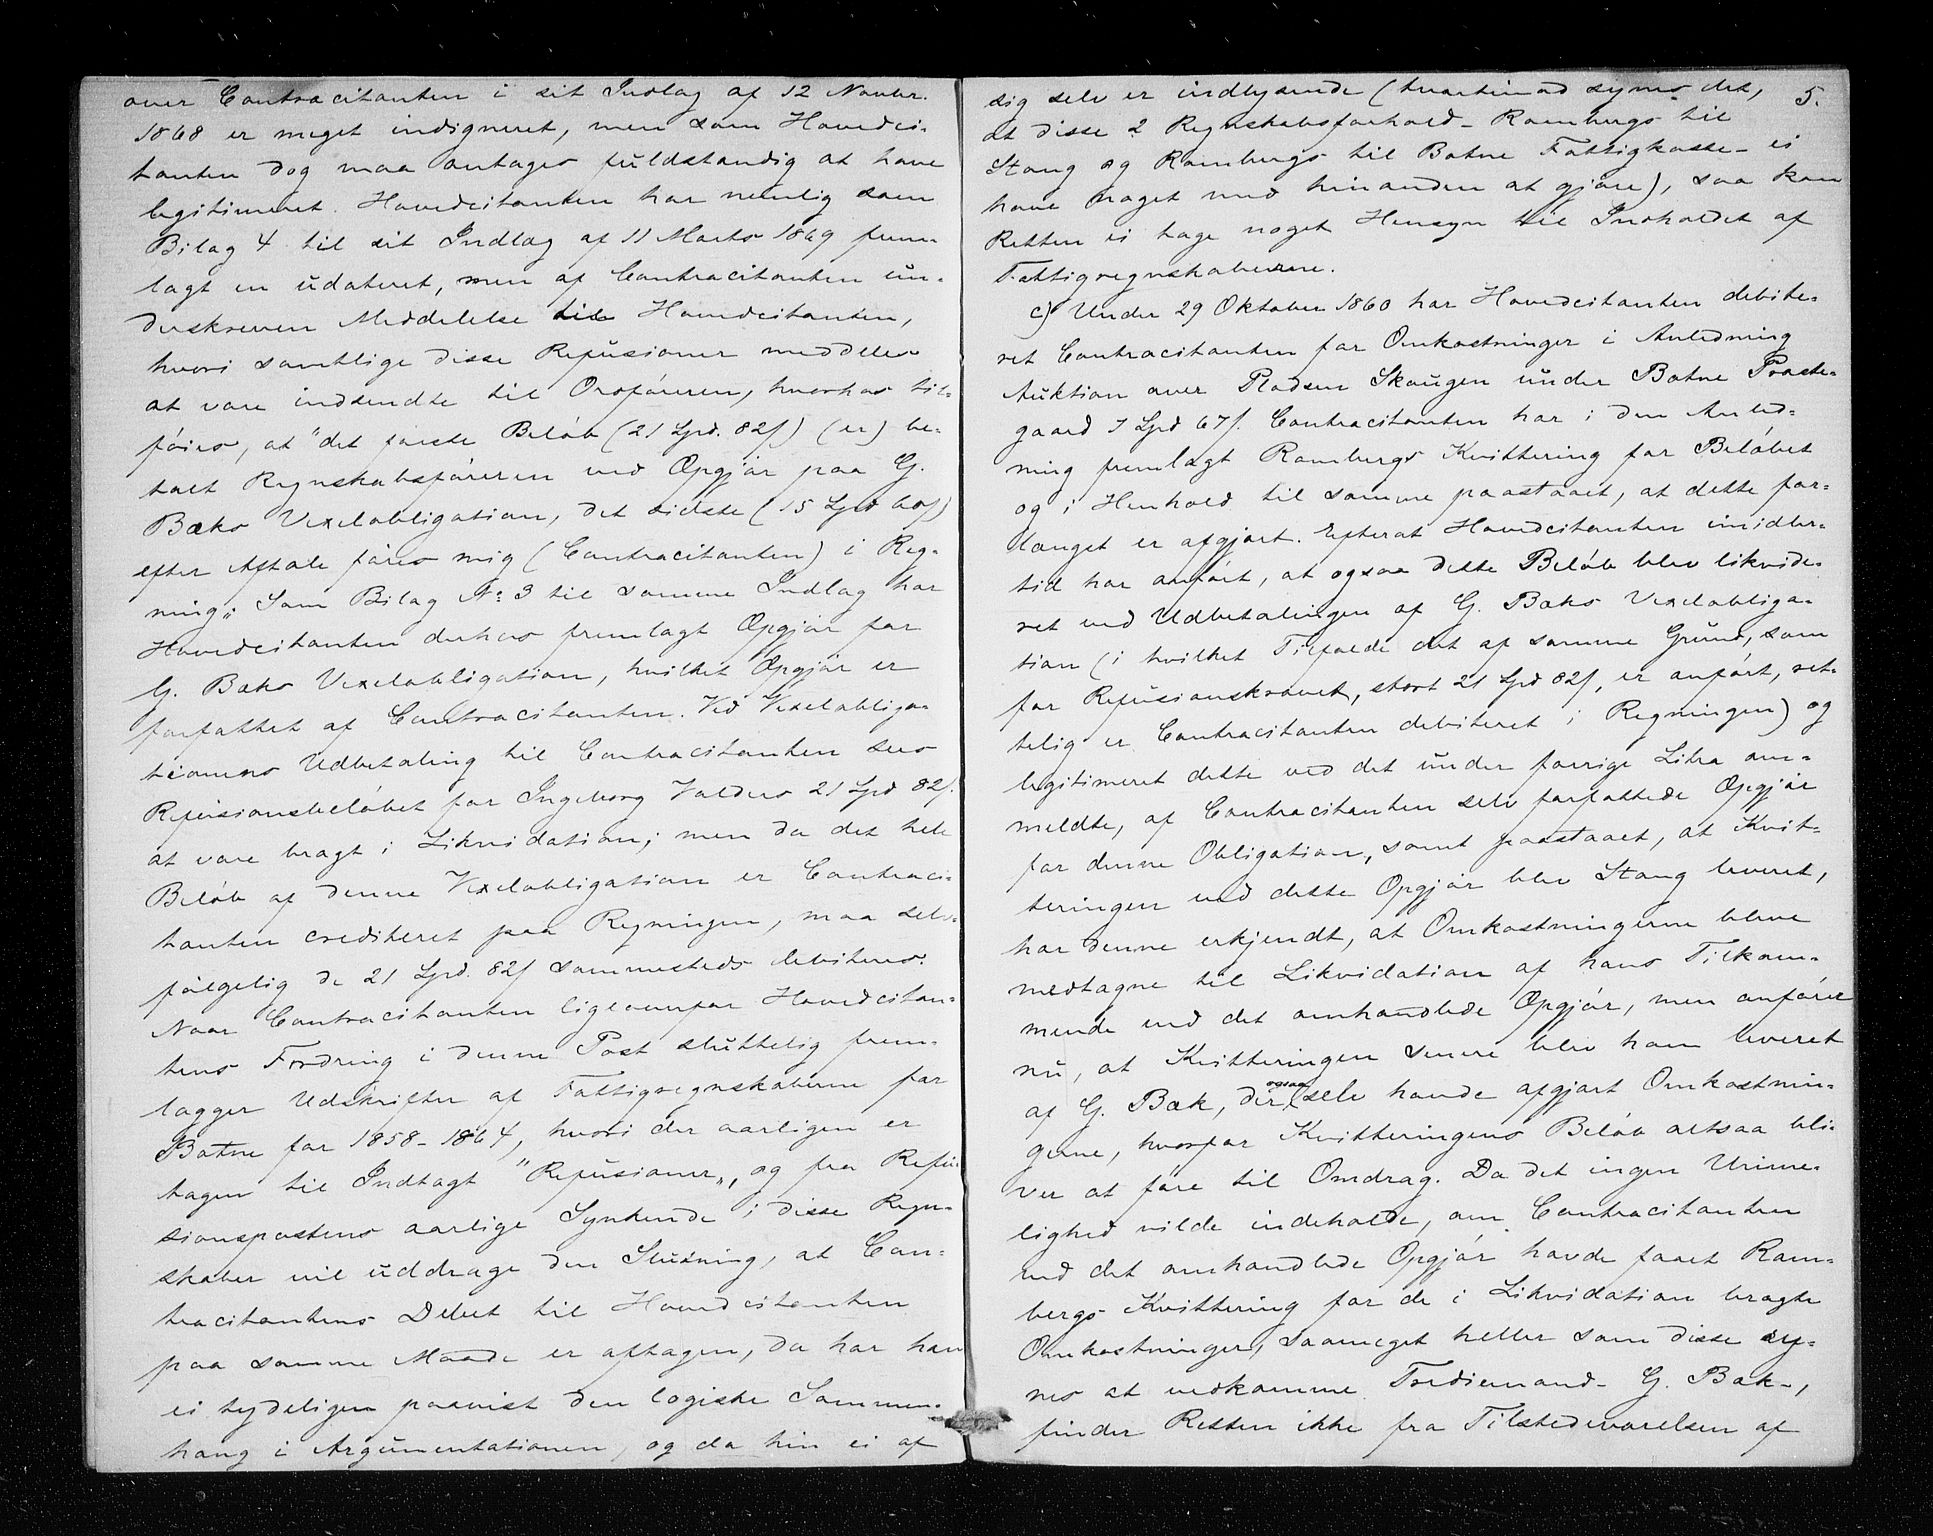 over Contracitanten i sit Indlæg af 12 Novbr.
1868 er meget indigneret, men som Hovedci-
tanten dog maa antages fuldstændig at have
legitimeret. Hovedcitanten har nemlig som
Bilag 4 til sit Indlæg af 11 Marts 1869 frem-
lagt en udateret, men af Contracitanten un-
derskreven Meddelelse til Hovedcitanten,
hvori samtlige disse Refusioner meddeles
at være indsendte til Ordføreren, hvorhos til-
føies, at "det første Beløb (21 Spd. 82 s) (er) be-
talt Regnskabsføreren ved Opgjør paa G.
Bæks Vexelobligation, det sidste (15 Spd 60 s)
efter Aftale føres mig (Contracitanten) i Reg-
ning". Som Bilag No 3 til samme Indlæg har
Hovedcitanten derhos fremlagt Opgjør for
G. Bæks Vexelobligation, hvilket Opgjør er
forfattet af Contracitanten. Ved Vexelobliga-
tionens Udbetaling til Contracitanten sees
Refusionsbeløbet for Ingeborg Valders 21 Spd 82 s.
at være bragt i Likvidation; men da det hele
Beløb af denne Vexelobligation er Contraci-
tanten crediteret paa Regningen, maa selv-
følgelig de 21 Spd. 82 s sammesteds debiteres.
Naar Contracitanten ligeoverfor Hovedcitan-
tens Fordring i denne Post sluttelig frem-
lægger Udskrifter af Fattigregnskaberne for
Botne for 1858-1864, hvori der aarligen er
tagen til Indtægt "Refusioner", og fra Refu-
sionspostens aarlige Synkende i disse Regn-
skaber vil uddrage den Slutning, at Con-
tracitantens Debet til Hovedcitanten
paa samme Maade er aftagen, da har han
ei tydeligen paavist den logiske Sammen-
hæng i Argumentationen, og da hin ei af
5.
sig selv er indlysende (tvertimod synes det,
at disse 2 Regnskabsforhold - Rambergs til
Stang og Rambergs til Botne Fattigkasse - ei
have noget med hinanden at gjøre), saa kan
Retten ei tage noget Hensyn til Indholdet af
Fattigregnskaberne.
c) Under 29 Oktober 1860 har Hovedcitanten debite-
ret Contracitanten for Omkostninger i Anledning
Auktion over Pladsen Skaugen under Botne Præste-
gaard 7 Spd 67 s. Contracitanten har i den Anled-
ning fremlagt Rambergs Kvittering for Beløbet
og i Henhold til samme paastaaet, at dette for-
længst er afgjort. Efterat Hovedcitanten imidler-
tid har anført, at ogsaa dette Beløb blev likvide-
ret ved Udbetalingen af G. Bæks Vexelobliga-
tion (i hvilket Tilfælde det af samme Grund, som
for Refusionskravet, stort 21 Spd 82 s, er anført, ret-
telig er Contracitanten debiteret i Regningen) og
legitimeret dette ved det under forrige Litra om-
meldte, af Contracitanten selv forfattede Opgjør
for denne Obligation, samt paastaaet, at Kvit-
teringen ved dette Opgjør blev Stang leveret,
har denne erkjendt, at Omkostningerne bleve
medtagne til Likvidation af hans Tilkom-
mende ved det omhandlede Opgjør, men anfører
nu, at Kvitteringen senere blev ham leveret
af G. Bæk, der ogsaa selv havde afgjort Omkostnin-
gerne, hvorfor Kvitteringens Beløb altsaa bli-
ver at føre til Omdrag. Da det ingen Urime-
lighed vilde indeholde, om Contracitanten
ved det omhandlede Opgjør havde faaet Ram-
bergs Kvittering for de i Likvidation bragte
Omkostninger, saameget heller som disse sy-
nes at vedkomme Trediemand - G. Bæk -,
finder Retten ikke fra Tilstedeværelsen af